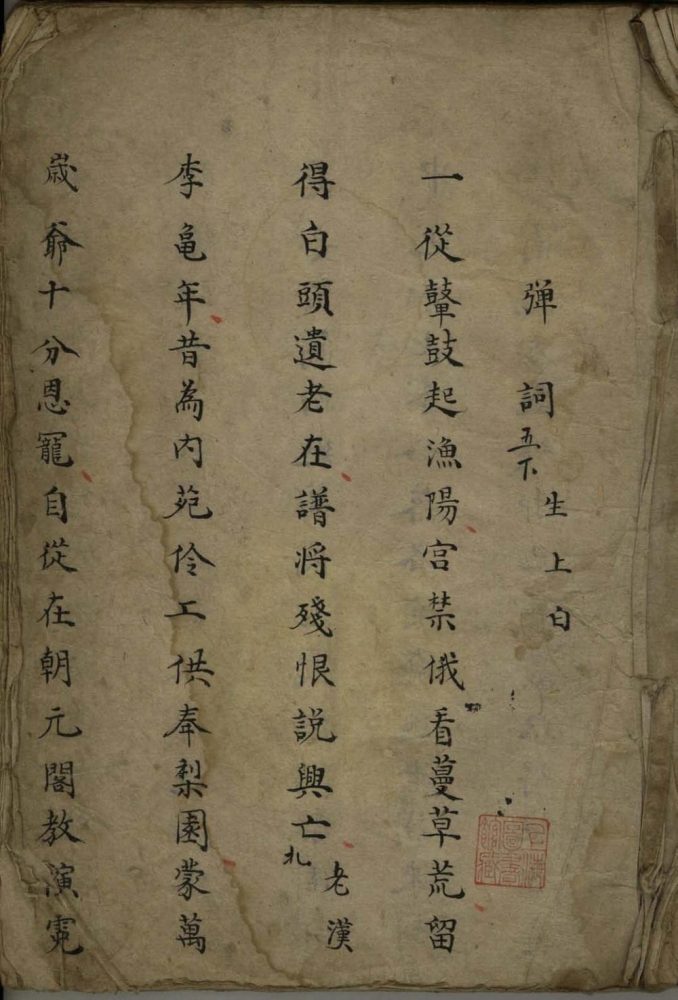 弹詞五下 生上白
一從鼙鼓起漁陽宮禁俄看蔓草荒留
得白頭遺老在譜將殘恨説興亡北老漢
李龜年昔為内苑伶工供奉梨園蒙萬
歲爺十分恩寵自從在朝元閣教演霓